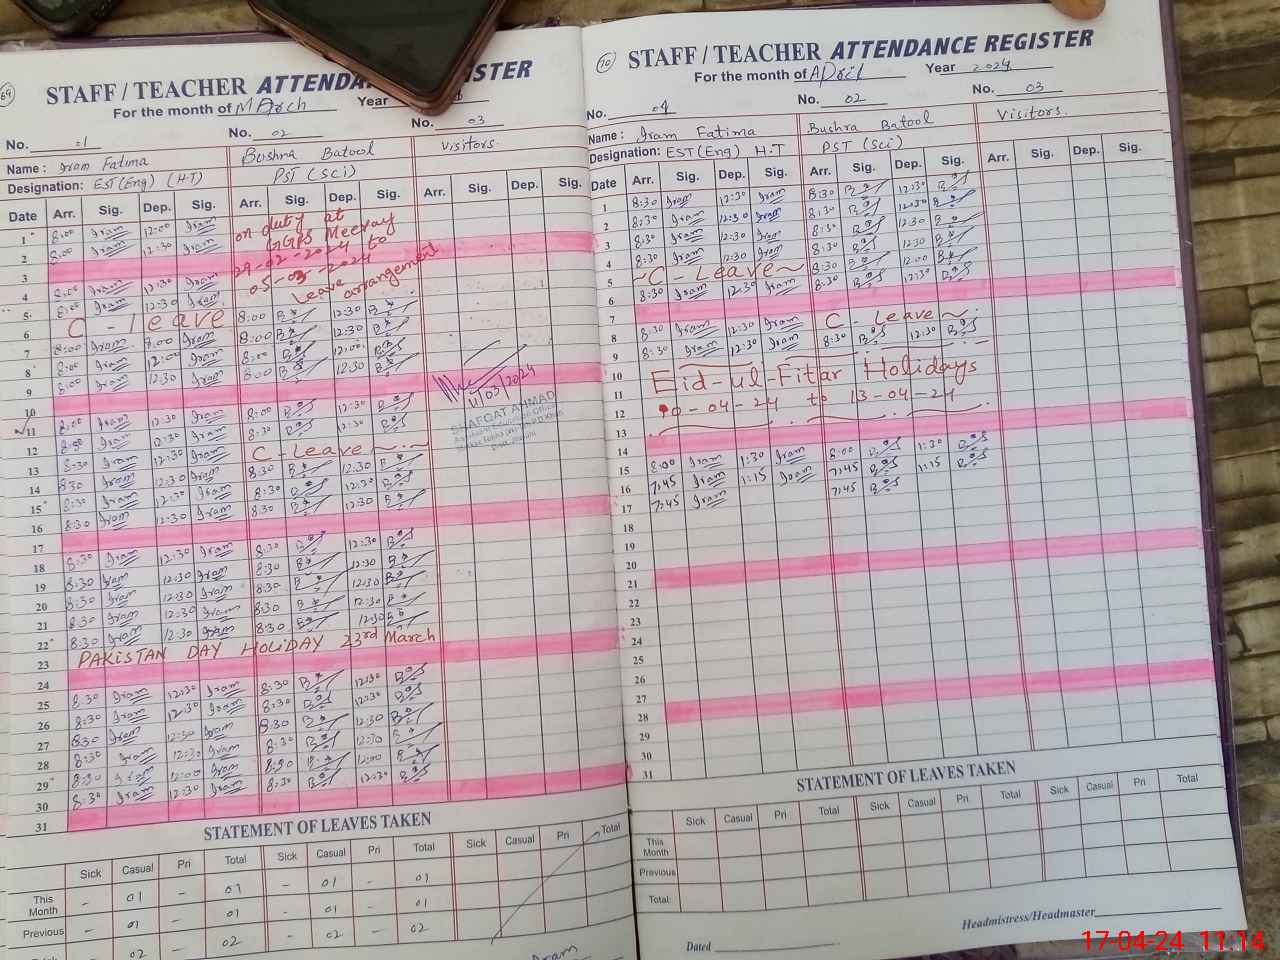 69
STAFF / TEACHER ATTENDANCE REGISTER
For the month of March Year
No. 01 No. 02 No. 03
Name : Iram Fatima Bushra Batool Visitors
Designation: EST (Eng) (H.T) PST (Sci)
Date Arr. Sig. Dep. Sig. Arr. Sig. Dep. Sig. Arr. Sig. Dep. Sig.
1 8:00 Iram 12:00 Iram on duty at
2 8:00 Iram 12:30 Iram GGPS Meeray
3 29-02-2024 to
4 8:00 Iram 12:30 Iram 05-03-2024
5 8:00 Iram 12:30 Iram Leave arrangement
6 C - leave 8:00 12:30
7 8:00 Iram 8:00 Iram 8:00 12:30
8 8:00 Iram 12:00 Iram 8:00 12:00
9 8:00 Iram 12:30 Iram 8:00 12:30
10
11 8:00 Iram 12:30 Iram 8:00 12:30
12 8:00 Iram 12:30 Iram 8:30 12:30
13 8:30 Iram 12:30 Iram C - Leave
14 8:30 Iram 12:30 Iram 8:30 12:30
15 8:30 Iram 12:30 Iram 8:30 12:30
16 8:30 Iram 12:30 Iram 8:30 12:30
17
18 8:30 Iram 12:30 Iram 8:30 12:30
19 8:30 Iram 12:30 Iram 8:30 12:30
20 8:30 Iram 12:30 Iram 8:30 12:30
21 8:30 Iram 12:30 Iram 8:30 12:30
22 8:30 Iram 12:30 Iram 8:30 12:30
23 PAKISTAN DAY HOLIDAY 23rd March
24
25 8:30 Iram 12:30 Iram 8:30 12:30
26 8:30 Iram 12:30 Iram 8:30 12:30
27 8:30 Iram 12:30 Iram 8:30 12:30
28 8:30 Iram 12:30 Iram 8:30 12:30
29 8:30 Iram 12:00 Iram 8:30 12:00
30 8:30 Iram 12:30 Iram 8:30 12:30
31
11/03/2024
SHAFQAT AHMAD
STATEMENT OF LEAVES TAKEN
Sick Casual Pri Total Sick Casual Pri Total Sick Casual Pri Total
This Month - 01 - 01 - 01 - 01
Previous - 01 - 01 - 01 - 01
- 02 - 02 - 02 - 02
Iram
70
STAFF / TEACHER ATTENDANCE REGISTER
For the month of April Year 2024
No. 04 No. 02 No. 03
Name : Iram Fatima Bushra Batool Visitors.
Designation: EST (Eng) H.T PST (Sci)
Date Arr. Sig. Dep. Sig. Arr. Sig. Dep. Sig. Arr. Sig. Dep. Sig.
1 8:30 Iram 12:30 Iram 8:30 12:30
2 8:30 Iram 12:30 Iram 8:30 12:30
3 8:30 Iram 12:30 Iram 8:30 12:30
4 8:30 Iram 12:30 Iram 8:30 12:30
5 C - Leave 8:30 12:00
6 8:30 Iram 12:30 Iram 8:30 12:30
7
8 8:30 Iram 12:30 Iram C - Leave
9 8:30 Iram 12:30 Iram 8:30 12:30
10
11 Eid-ul-Fitar Holidays
12 10-04-24 to 13-04-24
13
14
15 8:00 Iram 1:30 Iram 8:00 1:30
16 7:45 Iram 1:15 Iram 7:45 1:15
17 7:45 Iram 7:45
18
19
20
21
22
23
24
25
26
27
28
29
30
31
STATEMENT OF LEAVES TAKEN
Sick Casual Pri Total Sick Casual Pri Total Sick Casual Pri Total
This Month
Previous
Total:
Headmistress/Headmaster
Dated
17-04-24 11:14